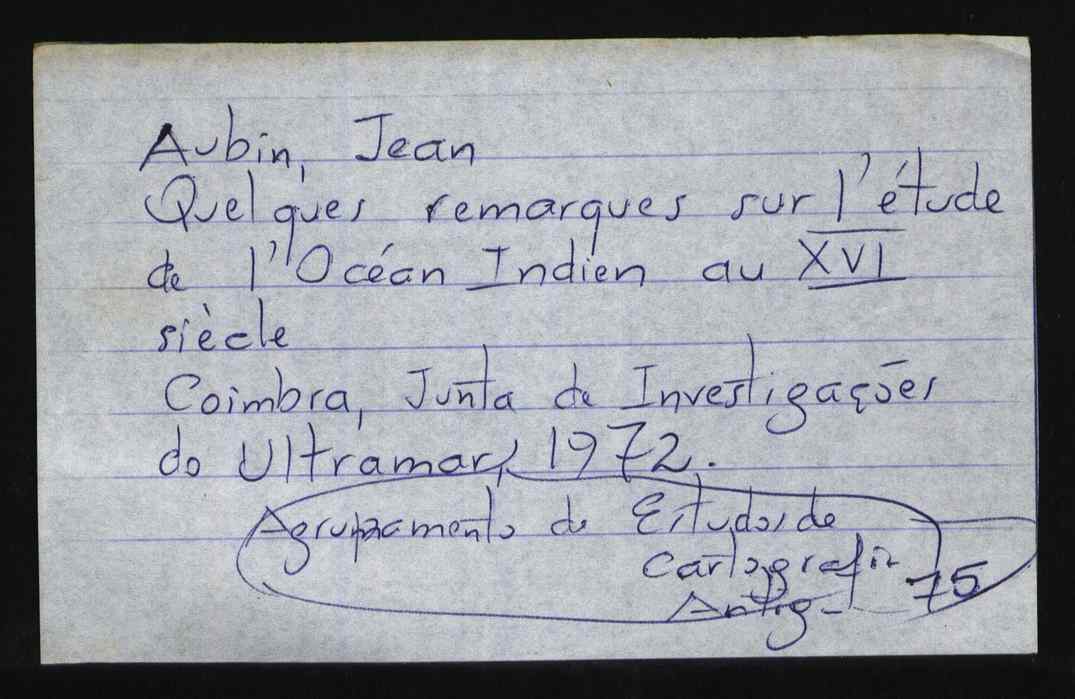 Aubin, Jean
Quelques remarques sur l'étude
de l'Océan Indien au XVI
siècle
Coimbra, Junta de Investigações
do Ultramar, 1972.
Agrupamento de Estudos de
Cartografia
Antiga 75